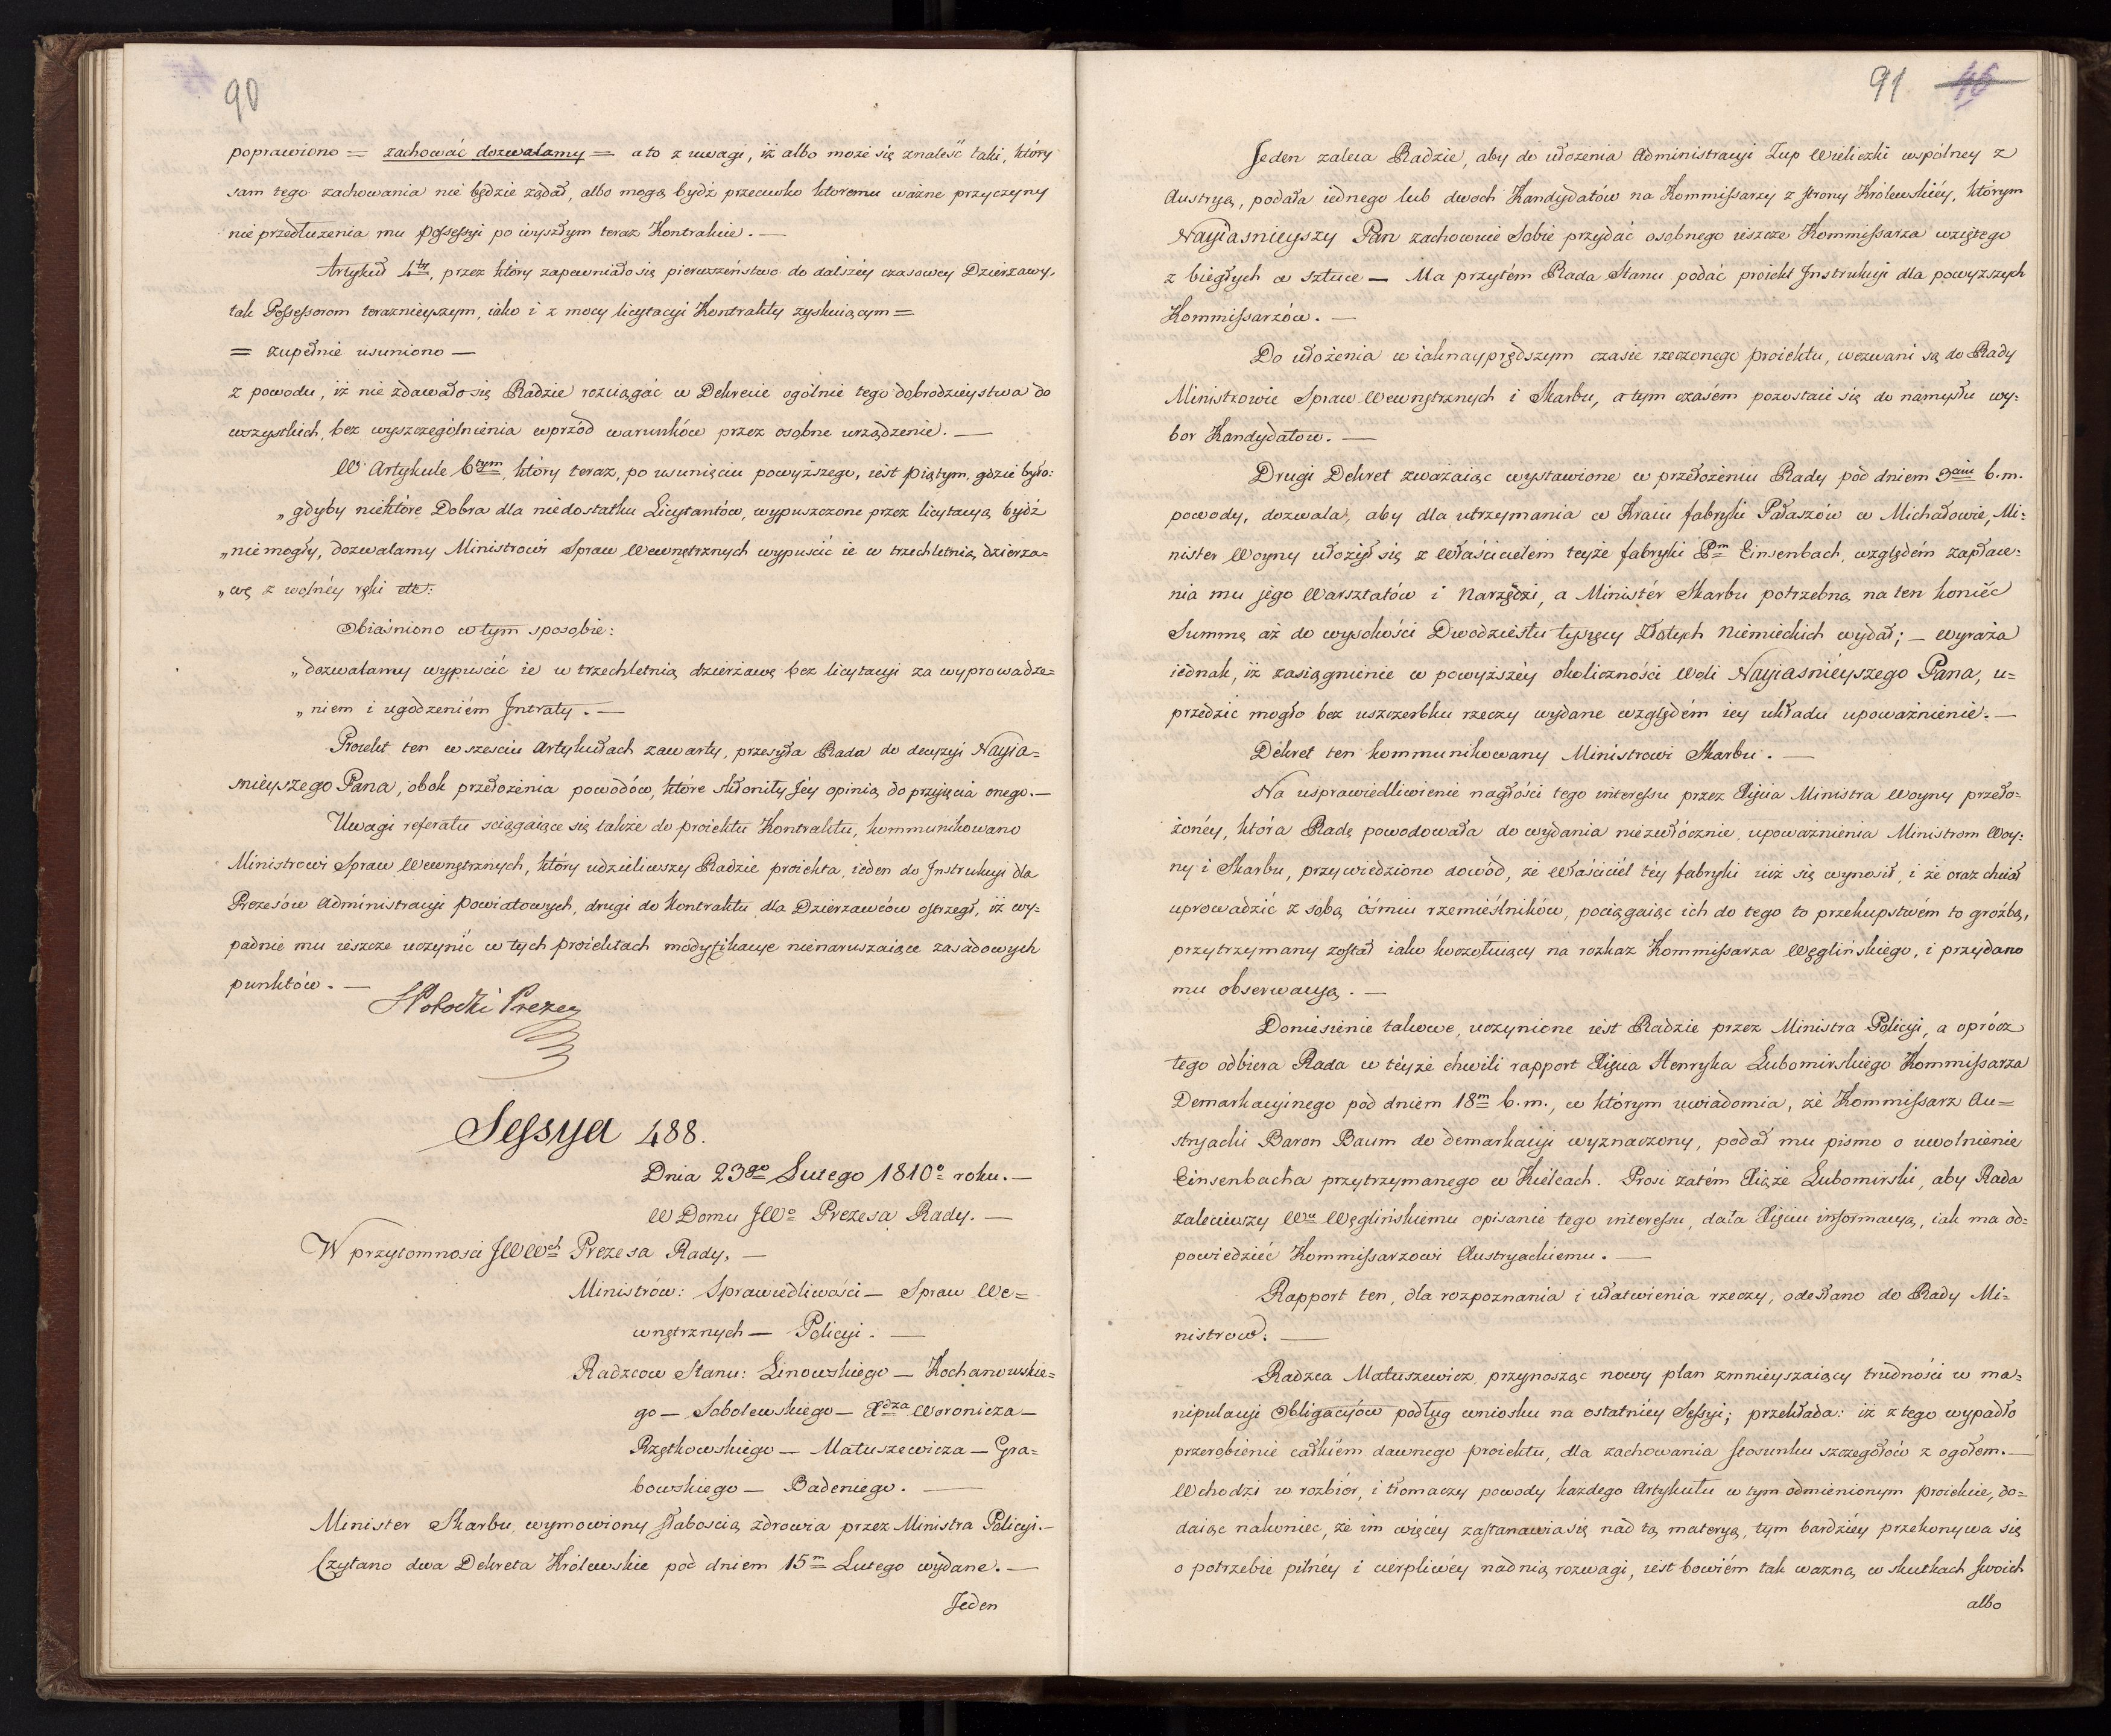 90
poprawiono = zachować dozwalamy = a to z uwagi, iż albo może się znaleść taki, który
sam tego zachowania nie będzie żądał, albo mogą bydź przeciwko ktoremu ważne przyczyny
nie przedłużenia mu possessyi po wyszłym teraz Kontrakcie. —
Artykuł 4ty, przez który zapewniało się pierwszeństwo do dalszéy czasowey Dzierzawy,
tak Possessorom teraznieyszym, iako i z mocy licytacyi Kontrakty zyskuiącym =
= zupełnie usuniono —
z powodu, iż nie zdawało się Radzie rozciągać w Dekrecie ogólnie tego dobrodzieystwa do
wszystkich, bez wyszczególnienia wprzód warunków przez osobne urządzenie. —
W Artykule 6tym, który teraz, po usunięciu powyższego, iest piątym, gdzie było:
„gdyby niektóre Dobra dla niedostatku Licytantów, wypuszczone przez licytacyą bydź
„nie mogły, dozwalamy Ministrowi Spraw Wewnętrznych wypuścić ie w trzechletnią dzierza=
„wę z wolnéy ręki etc:
Obiaśniono w tym sposobie:
„dozwalamy wypuścić ie w trzechletnią dzierżawę bez licytacyi za wyprowadze=
„niem i ugodzeniém Intraty. —
Proiekt ten w sześciu Artykułach zawarty, przesyła Rada do decyzyi Nayia=
śnieyszego Pana, obok przełożenia powodów, które skłoniły Jéy opinią do przyięcia onego. —
Uwagi referatu sciągaiące się także do proiektu Kontraktu, kommunikowano
Ministrowi Spraw Wewnętrznych, który udzieliwszy Radzie proiekta, ieden do Instrukcyi dla
Prezesów Administracyi Powiatowych, drugi do Kontraktu dla Dzierzawców ostrzegł, iż wy=
padnie mu ieszcze uczynić w tych proiektach modyfikacye nienaruszaiące zasadowych
punktów. —
SPotocki Prezes
Sessya 488.
Dnia 23go Lutego 1810o roku. —
W Domu JWo Prezesa Rady. —
W przytomności JWWch Prezesa Rady, —
Ministrów: Sprawiedliwości — Spraw We=
wnętrznych — Policyi. —
Radzcow Stanu: Linowskiego — Kochanowskie=
go — Sobolewskiego — Xdza Woronicza —
Rzętkowskiego — Matuszewicza — Gra=
bowskiego — Badeniego. —
Minister Skarbu, wymowiony słabością zdrowia przez Ministra Policyi. —
Czytano dwa Dekreta Królewskie pod dniem 15m Lutego wydane. —
Jeden
91 46
Jeden zaleca Radzie, aby do ułożenia Administracyi Żup Wieliczki wspólney z
Austryą, podała iednego lub dwoch Kandydatów na Kommissarzy z strony Królewskiéy, którym
Nayiaśnieyszy Pan zachowuie Sobie przydać osobnego ieszcze Kommissarza wziętego
z biegłych w sztuce — Ma przytém Rada Stanu podać proiekt Instrukcyi dla powyższych
Kommissarzów. —
Do ułożenia w iaknayprędszym czasie rzeczonego proiektu, wezwani są do Rady
Ministrowie Spraw Wewnętrznych i Skarbu, a tym czasém pozostaie się do námysłu wy=
bor Kandydatow. —
Drugi Dekret zważaiąc wystawione w przełożeniu Rady pod dniem 3cim b.m.
powody, dozwala, aby dla utrzymania w Kraiu fabryki Pałaszów w Michałowie, Mi=
nister Woyny ułożył się z właścicielém teyże fabryki Pm Einsenbach, względém zapłace=
nia mu jego Warsztatów i Narzędzi, a Ministér Skarbu potrzebną na ten koniéc
Summę aż do wysokości Dwodziestu tysięcy Złotych Niemieckich wydał; — wyraża
iednak, iż zasiągnienie w powyższéy okoliczności Woli Nayiaśnieyszego Pana, u=
przedzic mogło bez uszczerbku rzeczy wydane względém iey układu upoważnienie. —
Dekret ten kommunikowany Ministrowi Skarbu. —
Na usprawiedliwienie nagłości tego interessu przez Xięcia Ministra Woyny przeło=
żonéy, która Radę powodowała do wydania niezwłócznie upoważnienia Ministrom Woy=
ny i Skarbu, przywiedziono dowód, że właściciél téy fabryki iuż się wynosił, i że oraz chciał
uprowadzić z sobą ośmiu rzemieślników, pociągaiąc ich do tego to przekupstwém to groźbą,
przytrzymany został iako koczoluiący na rozkaz Kommissarza Węglińskiego, i przydano
mu obserwacyą. —
Doniesienie takowe, uczynione iest Radzie przez Ministra Policyi, a oprócz
tego odbiera Rada w téyże chwili rapport Xięcia Henryka Lubomirskiego Kommissarza
Demarkacyinego pod dniem 18m b.m., w którym uwiadomia, że Kommissarz Au=
stryacki Baron Baum do demarkacyi wyznaczony, podał mu pismo o uwolnienie
Einsenbacha przytrzymanego w Kielcach. Prosi zatém Xiąże Lubomirski, aby Rada
zaleciwszy Wu Węglińskiemu opisanie tego interessu, dała Xięciu informacyą, iak ma od=
powiedzieć Kommissarzowi Austryackiemu. —
Rapport ten, dla rozpoznania i ułatwienia rzeczy, odesłano do Rady Mi=
nistrow. —
Radzca Matuszewicz, przynosząc nowy plan zmnieyszaiący trudności w ma=
nipulacyi Obligacyiów podług wniosku na ostatniey Sessyi; przekłada: iż z tego wypadło
przerobienie całkiém dawnego proiektu, dla zachowania stosunku szczegółów z ogołem. —
Wchodzi w rozbiór, i tłomaczy powody każdego Artykułu w tym odmienionym proiekcie, do=
daiąc nakoniec, że im więcéy zastanawia się nad tą materyą, tym bardziéy przekonywa się
o potrzebie pilnéy i cierpliwéy nad nią rozwagi, iest bowiém tak ważną w skutkach swoich
albo